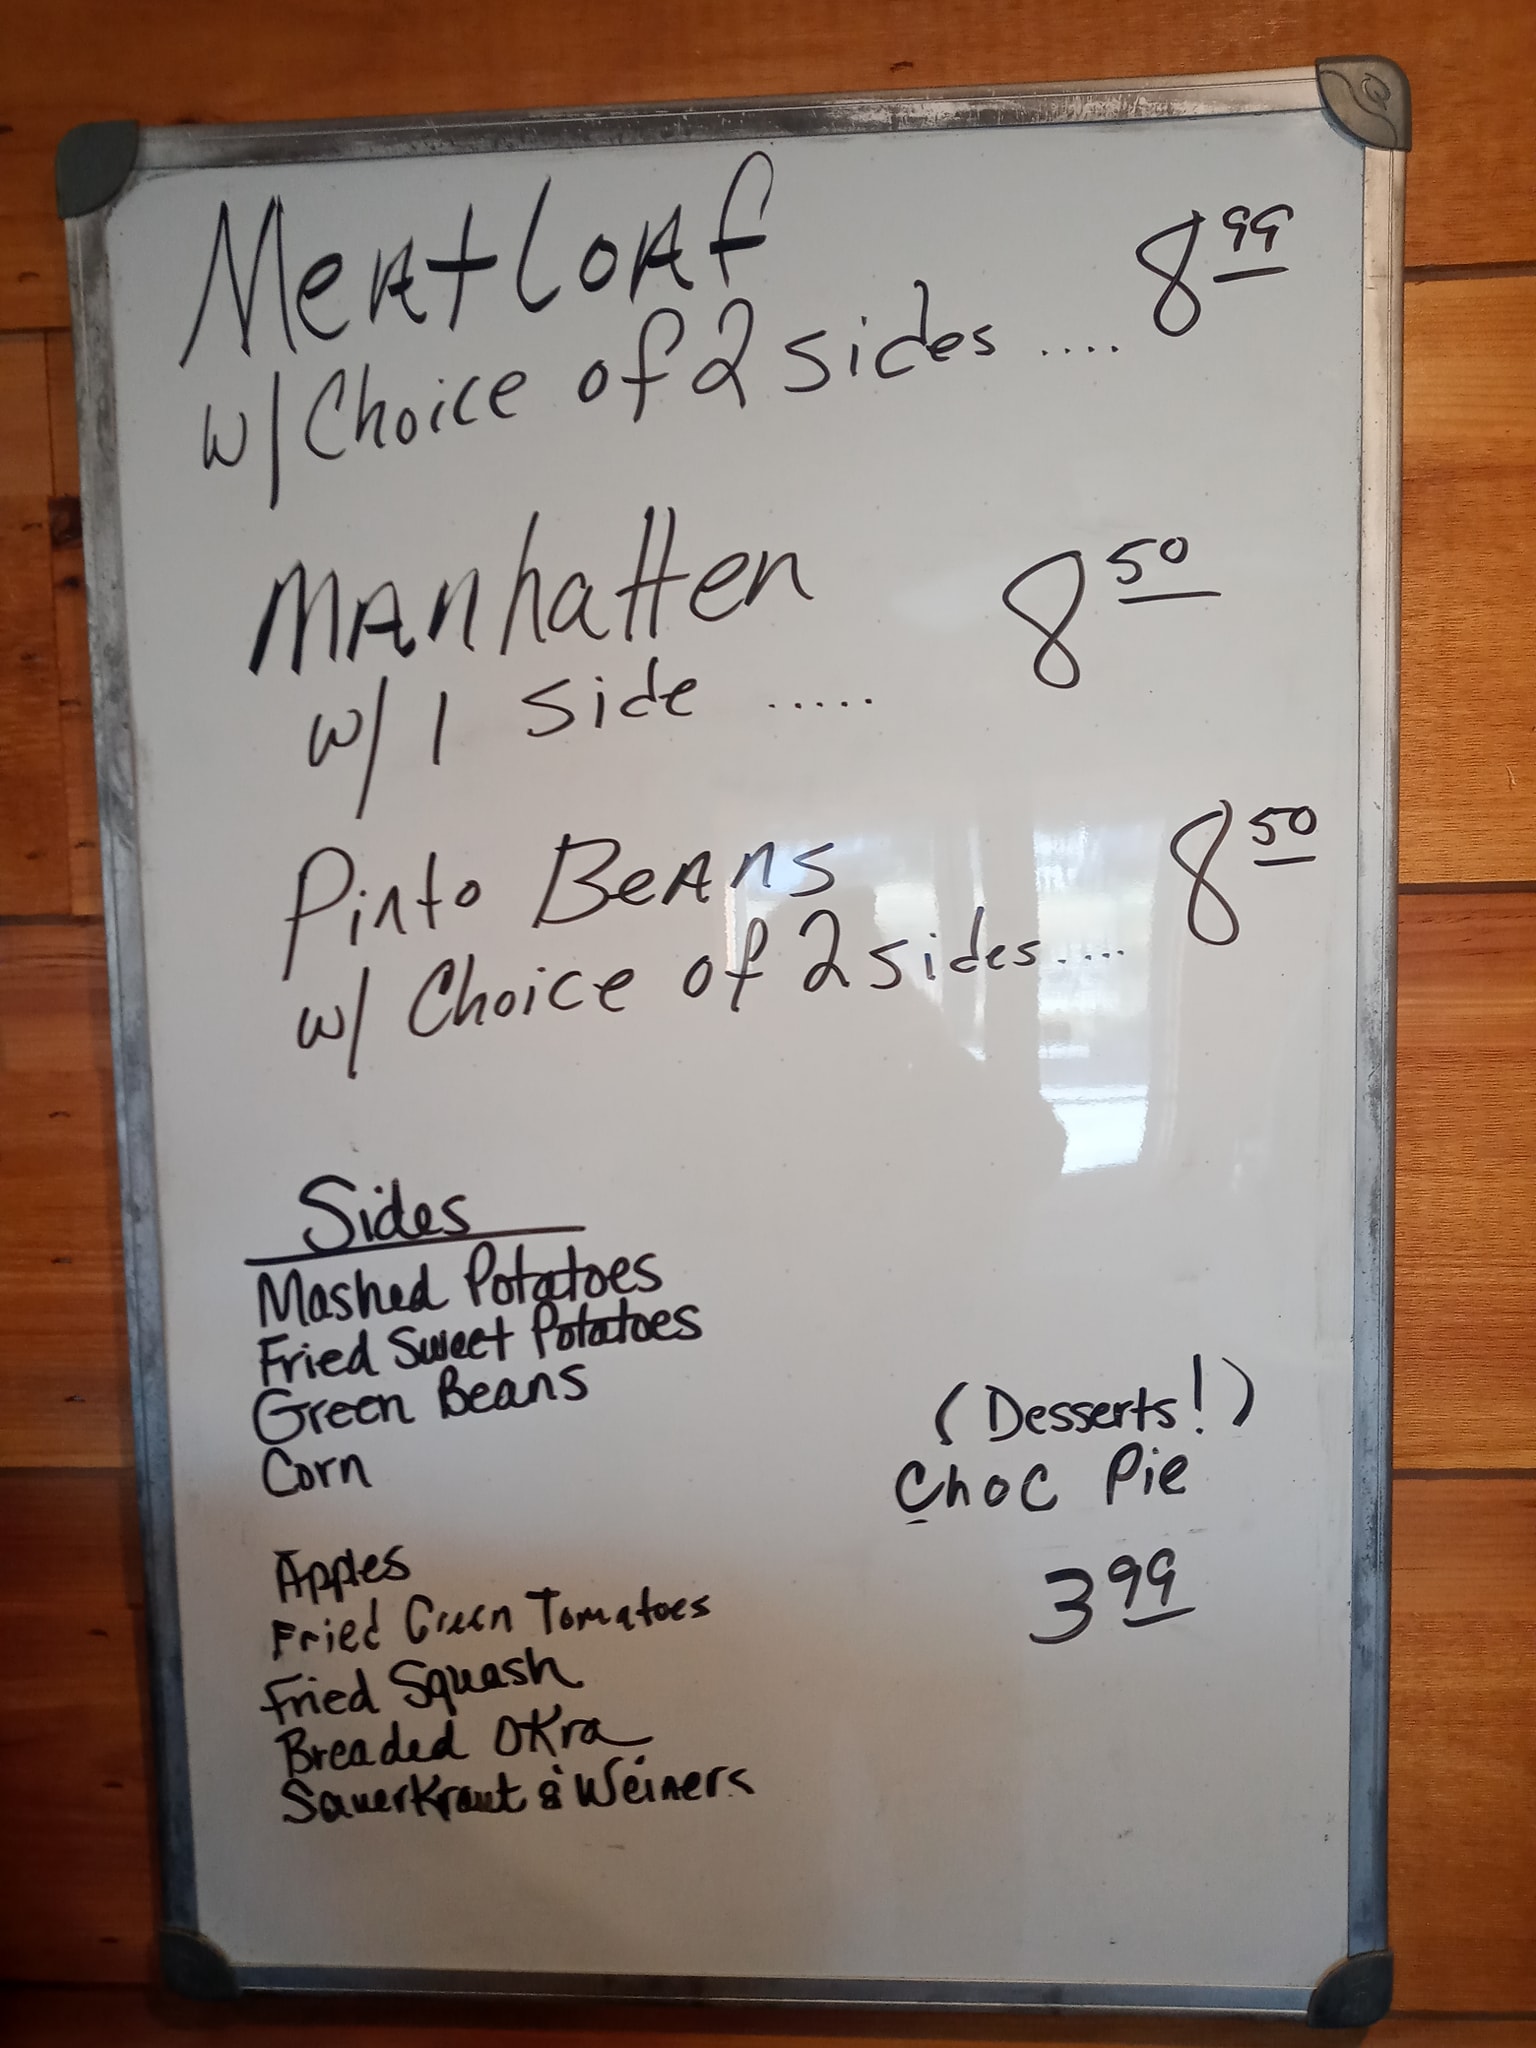 Meatloaf 8 99
w/ Choice of 2 sides ....
Manhatten 8 50
w/ 1 side .....
Pinto Beans 8 50
w/ Choice of 2 sides ....
Sides
Mashed Potatoes
Fried Sweet Potatoes
Green Beans
Corn
Apples
Fried Green Tomatoes
Fried Squash
Breaded Okra
SauerKraut & Weiners
(Desserts!)
Choc Pie
3 99